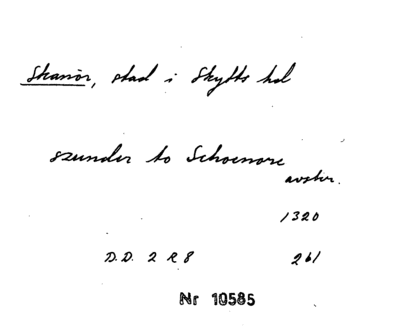 Skanör, stad i Skytts hd
szunder to Schoenore
avskr.
1320
D.D. 2 R 8 261
Nr 10585